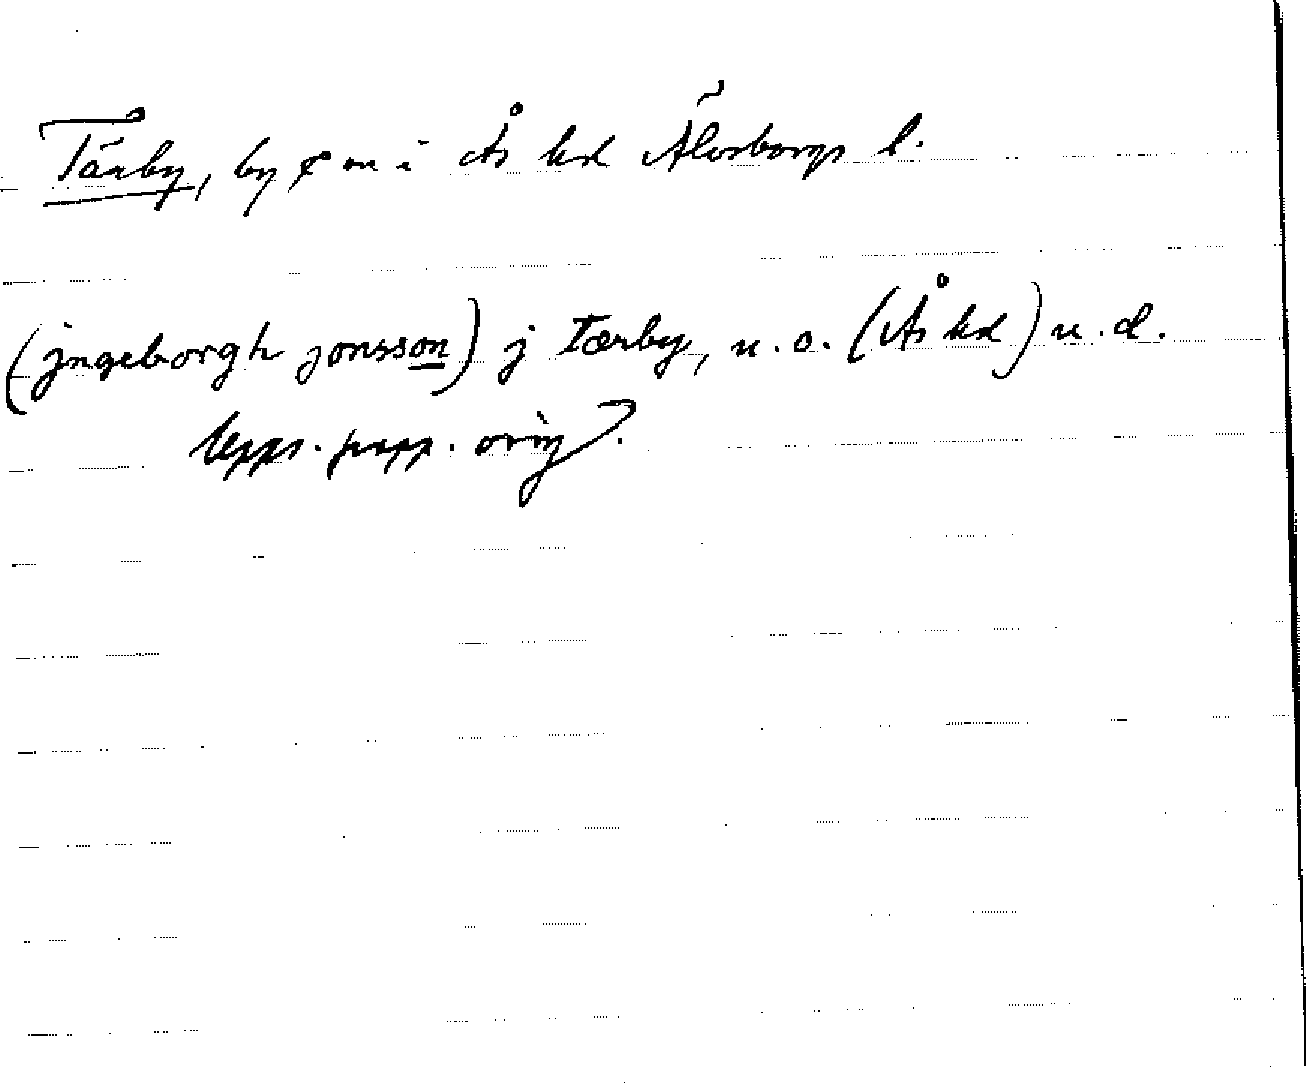 Tärby, by o sn i Ås hd Älvsborgs l.
(jngeborgh jonsson) j Tærby, u. o. (Ås hd) u. d.
Upps. papp. orig.